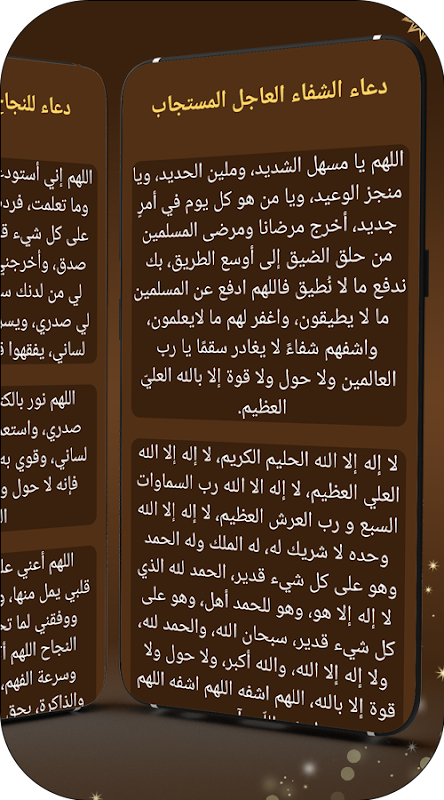 دعاء الشفاء العاجل المستجاب
اللهم يا مسهل الشديد، وملين الحديد، ويا
منجز الوعيد، ويا من هو كل يوم في أمرٍ
جديد، أخرج مرضانا ومرضى المسلمين
من حلق الضيق إلى أوسع الطريق، بك
ندفع ما لا نُطيق فاللهم ادفع عن المسلمين
ما لا يطيقون، واغفر لهم ما لايعلمون،
واشفهم شفاءً لا يغادر سقمًا يا رب
العالمين ولا حول ولا قوة إلا بالله العليّ
العظيم.
لا إله إلا الله الحليم الكريم، لا إله إلا الله
العلي العظيم، لا إله الا الله رب السماوات
السبع و رب العرش العظيم، لا إله إلا الله
وحده لا شريك له، له الملك وله الحمد
وهو على كل شيء قدير، الحمد لله الذي
لا إله إلا هو، وهو للحمد أهل، وهو على
كل شيء قدير، سبحان الله، والحمد لله،
ولا إله إلا الله، والله أكبر، ولا حول ولا
قوة إلا بالله، اللهم اشفه اللهم اشفه اللهم
دعاء للنجاح
اللهم إني أستودع
وما تعلمت، فرد
على كل شيء ق
صدق، وأخرجني
لي من لدنك س
لي صدري، ويس
لساني، يفقهوا ق
اللهم نور بالكت
صدري، واستعم
لساني، وقوي به
فإنه لا حول و
اللهم أعني عل
قلبي يمل منها، و
ووفقني لما تح
النجاح اللهم أ
وسرعة الفهم،
والذاكرة، بحق